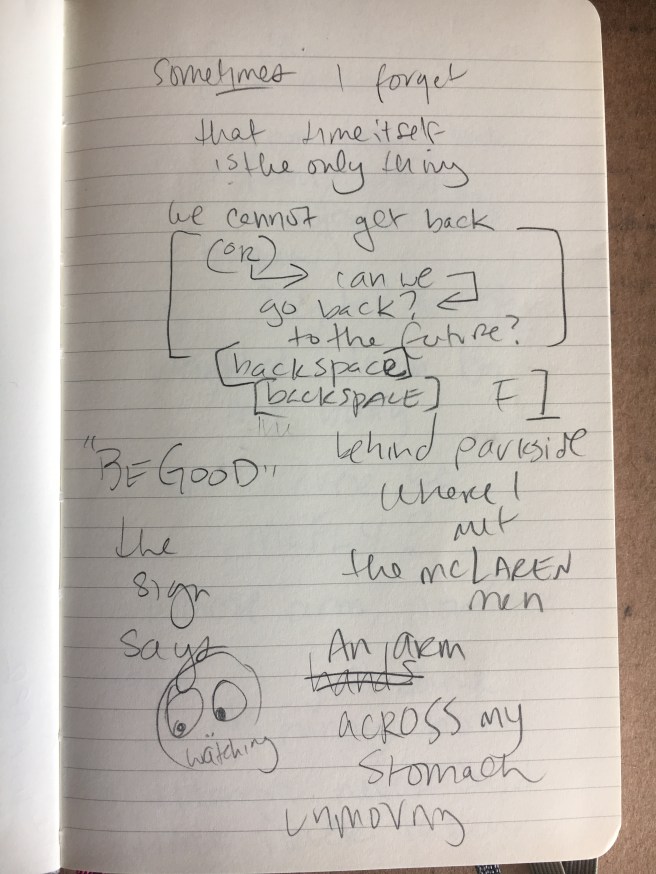 Sometimes I forget
that time itself
is the only thing
we cannot get back
(OR)
can we
go back?
to the future?
[backspace]
[backSPACE] F]
"BE GOOD"
the
sign
says
behind parkside
where I
met
the mcLAREN
men
An arm
hands
ACROSS my
Stomach
unmoving
wätching